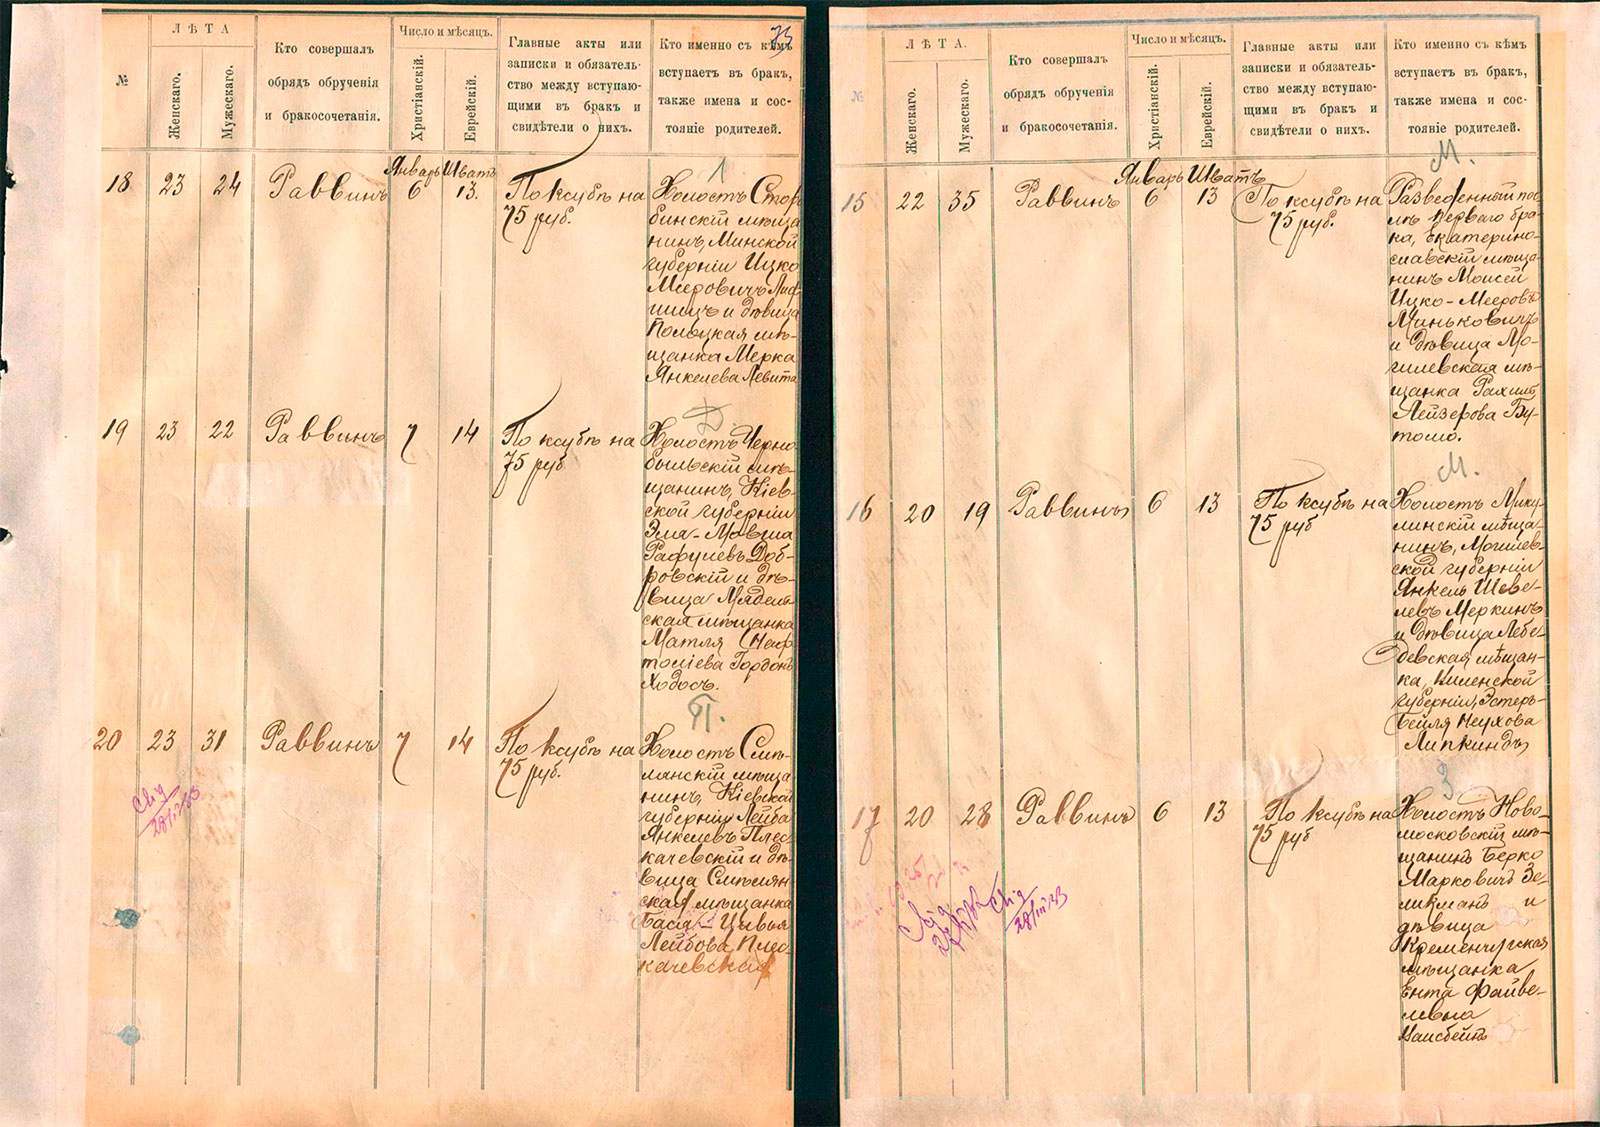 73
№
ЛѢТА
Женскаго.
Мужескаго.
Кто совершалъ
обрядъ обрученія
и бракосочетанія.
Число и мѣсяцъ.
Христіанскій.
Еврейскій.
Главные акты или
записки и обязатель-
ство между вступаю-
щими въ бракъ и
свидѣтели о нихъ.
Кто именно съ кѣмъ
вступаетъ въ бракъ,
также имена и сос-
тояніе родителей.
Январь Шватъ
18 23 24 Раввинъ 6 13.
По ксубѣ на
75 руб.
Холостъ Стол
бинскій мѣща
нинъ, Минской
губерніи Ицко
Мееровичъ
и дѣвица
Полоцкая мѣ-
щанка Мерка
Янкелева Левита
Д
19 23 22 Раввинъ 7 14
По ксубѣ на
75 руб
Холостъ Черно
быльскій мѣ-
щанинъ, Кіев-
ской губерніи
Эля-Мовша
Рафулевъ Доб-
ровскій и дѣ-
вица Мядель
ская мѣщанка
Матля Наф
толіева Гордонъ
Ходосъ.
П.
20 23 31 Раввинъ 7 14
По ксубѣ на
75 руб.
Холостъ Смѣ-
лянскій мѣща
нинъ, Кіевской
губерніи Лейба
Янкелевъ Плес
качевскій и дѣ
вица Смѣлян-
ская мѣщанка
Бася-Цивья
Лейбова Плес-
качевская
№
ЛѢТА.
Женскаго.
Мужескаго.
Кто совершалъ
обрядъ обрученія
и бракосочетанія.
Число и мѣсяцъ.
Христіанскій.
Еврейскій.
Главные акты или
записки и обязатель-
ство между вступаю-
щими въ бракъ и
свидѣтели о нихъ.
Кто именно съ кѣмъ
вступаетъ въ бракъ,
также имена и сос-
тояніе родителей.
Январь Шватъ
М.
15 22 35 Раввинъ 6 13
По ксубѣ на
75 руб.
Разведенный пос
лѣ перваго бра-
ка, Екатерино-
славскій мѣща-
нинъ Моисей
Ицко-Мееровъ
Миньковичъ
и дѣвица Мо-
гилевская мѣ-
щанка Рахиль
Лейзерова Бу-
томо.
М.
16 20 19 Раввинъ 6 13
По ксубѣ на
75 руб
Холостъ Мику-
линскій мѣща-
нинъ, Могилев-
ской губерніи
Янкель Шеве-
левъ Меркинъ
и дѣвица Лебе-
девская мѣщан-
ка, Виленской
губерніи, Эстеръ-
Бейля Неухова
Липкиндъ
З
17 20 28 Раввинъ 6 13
По ксубѣ на
75 руб
Холостъ Ново-
московскій мѣ-
щанинъ Берко
Марковичъ Зе-
ликманъ и
дѣвица
Кременчугская
мѣщанка
Ента Файве-
левна
Вайсбейнъ